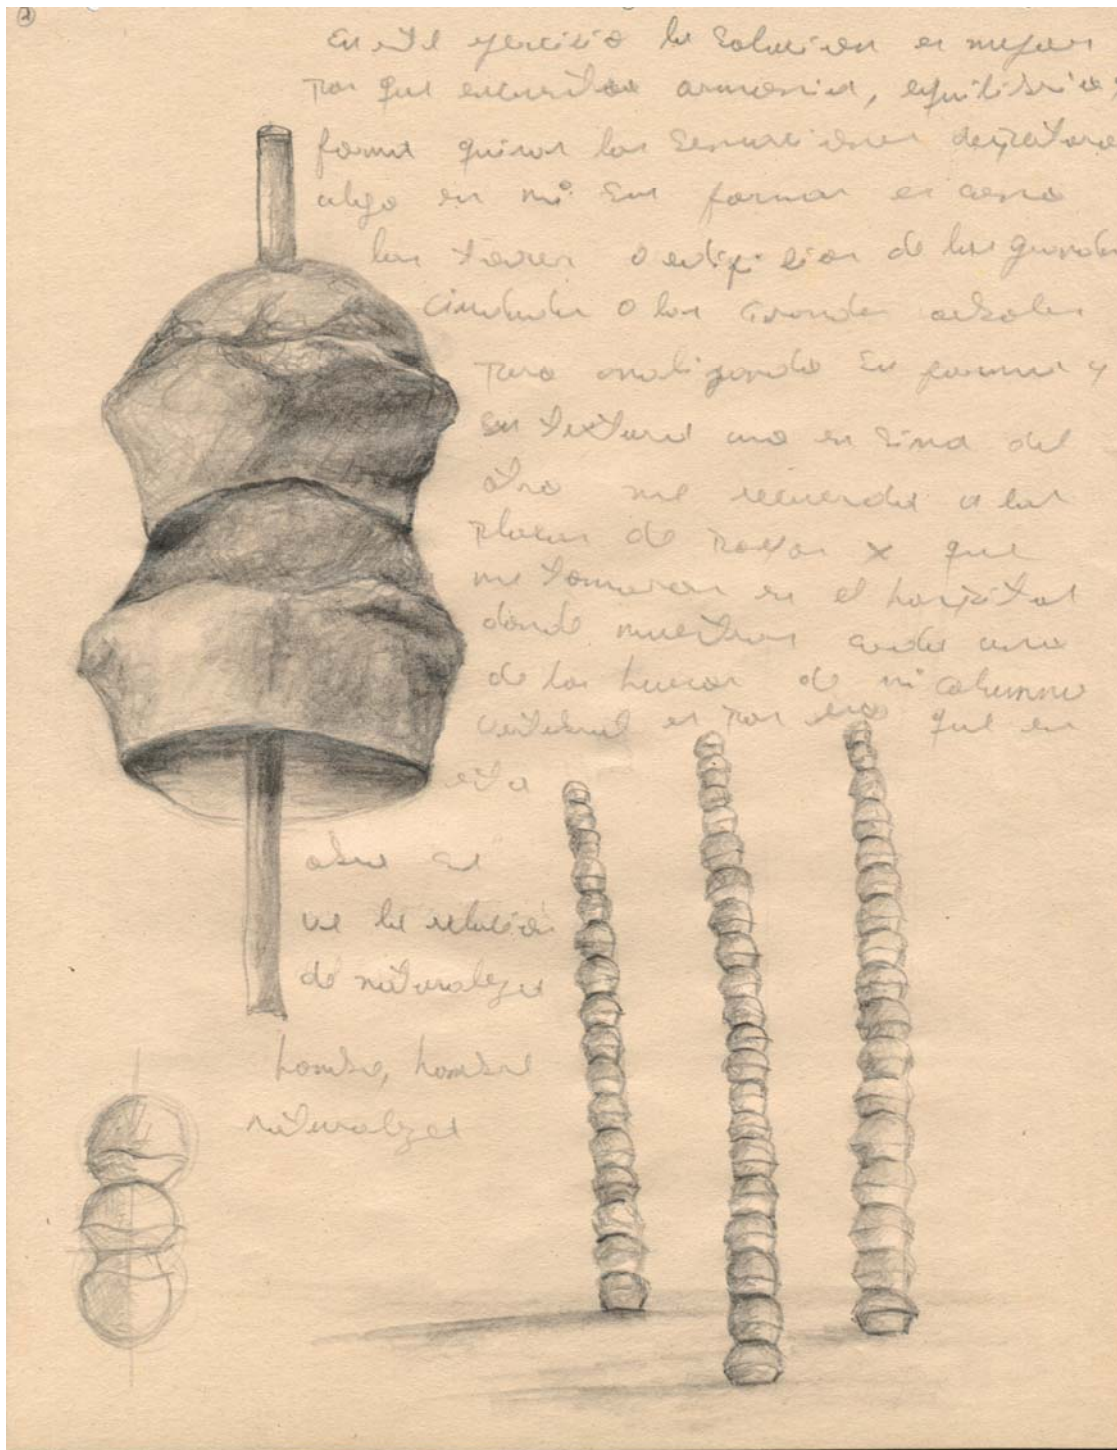 ②
En este ejercisio la solucion es mejor
por que encuentro armonia, equilibrio,
forma quisas las sensaciones despertaro
algo en mi sus formas es como
las torres o edificios de las grandes
ciudades o los grandes arboles
pero analizando su forma y
su textura uno en sima del
otro me recuerda a las
placas de rayos x que
me tomaron en el hospital
donde muestran cada uno
de los huesos de mi columna
vertebral es por eso que en
esta
obra se
ve la relacion
de naturaleza
hombre, hombre
naturaleza